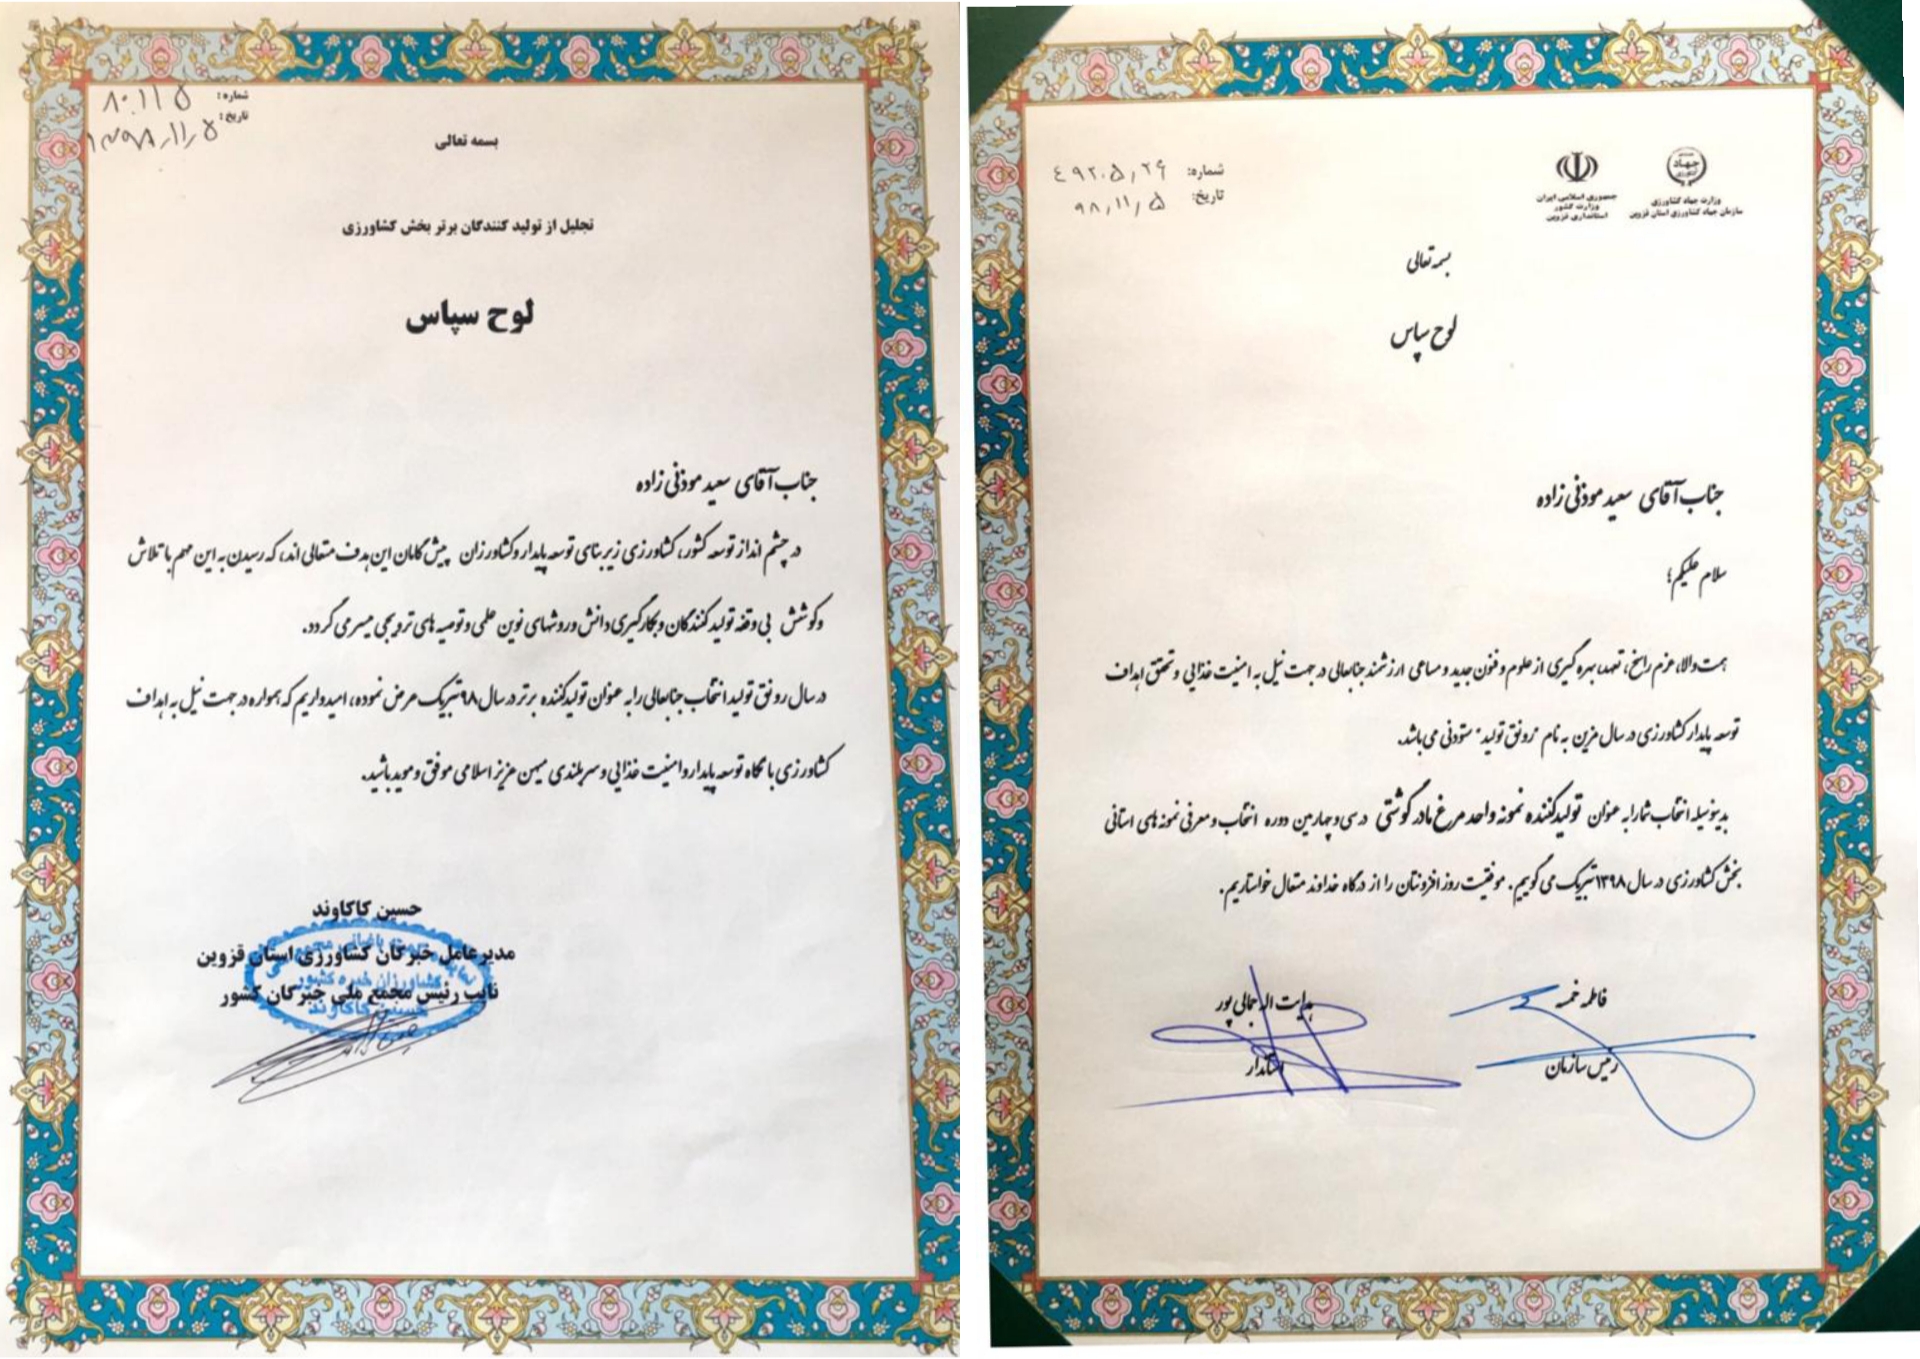 شماره: ۸۰۱۱۵
تاریخ: ۱۳۹۸,۱۱,۵
بسمه تعالی
تجلیل از تولید کنندگان برتر بخش کشاورزی
لوح سپاس
جناب آقای سعید موذنی زاده
در چشم انداز توسعه کشور، کشاورزی زیر بنای توسعه پایدار و کشاورزان پیش گامان این هدف متعالی اند، که رسیدن به این مهم با تلاش
و کوشش بی وقفه تولید کنندگان و بکارگیری دانش و روشهای نوین علمی و توصیه های ترویجی میسر می گردد.
در سال رونق تولید انتخاب جنابعالی را به عنوان تولید کننده برتر در سال ۹۸ تبریک عرض نموده، امیدواریم که همواره در جهت نیل به اهداف
کشاورزی با نگاه توسعه پایدار و امنیت غذایی و سربلندی میهن عزیز اسلامی موفق و موید باشید.
حسین کاکاوند
مدیر عامل خبرگان کشاورزی استان قزوین
نایب رئیس مجمع ملی خبرگان کشور
کشاورزان خبره کشور
حسین کاکاوند
جهاد
کشاورزی
وزارت جهاد کشاورزی
سازمان جهاد کشاورزی استان قزوین
جمهوری اسلامی ایران
وزارت کشور
استانداری قزوین
شماره: ۴۹۲۰۵,۲۶
تاریخ: ۹۸,۱۱,۵
بسمه تعالی
لوح سپاس
جناب آقای سعید موذنی زاده
سلام علیکم؛
همت والا، عزم راسخ، تعهد، بهره گیری از علوم و فنون جدید و مساعی ارزشمند جنابعالی در جهت نیل به امنیت غذایی و تحقق اهداف
توسعه پایدار کشاورزی در سال مزین به نام "رونق تولید" ستودنی می باشد.
بدینوسیله انتخاب شما را به عنوان تولید کننده نمونه واحد مرغ مادر گوشتی در سی و چهارمین دوره انتخاب و معرفی نمونه های استانی
بخش کشاورزی در سال ۱۳۹۸ تبریک می گوییم. موفقیت روز افزونتان را از درگاه خداوند متعال خواستاریم.
فاطمه خمسه
رئیس سازمان
هدایت اله جمالی پور
استاندار